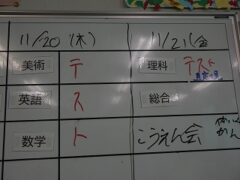 11/20(木) 11/21(金
美術 テ 理科 テスト
英語 ス 総合
数学 ト こうえん会